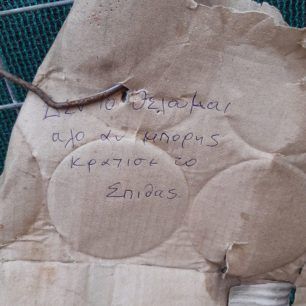 Δεν το θελουμαι
αλο αν μπορης
κρατισε το
Σπιθας